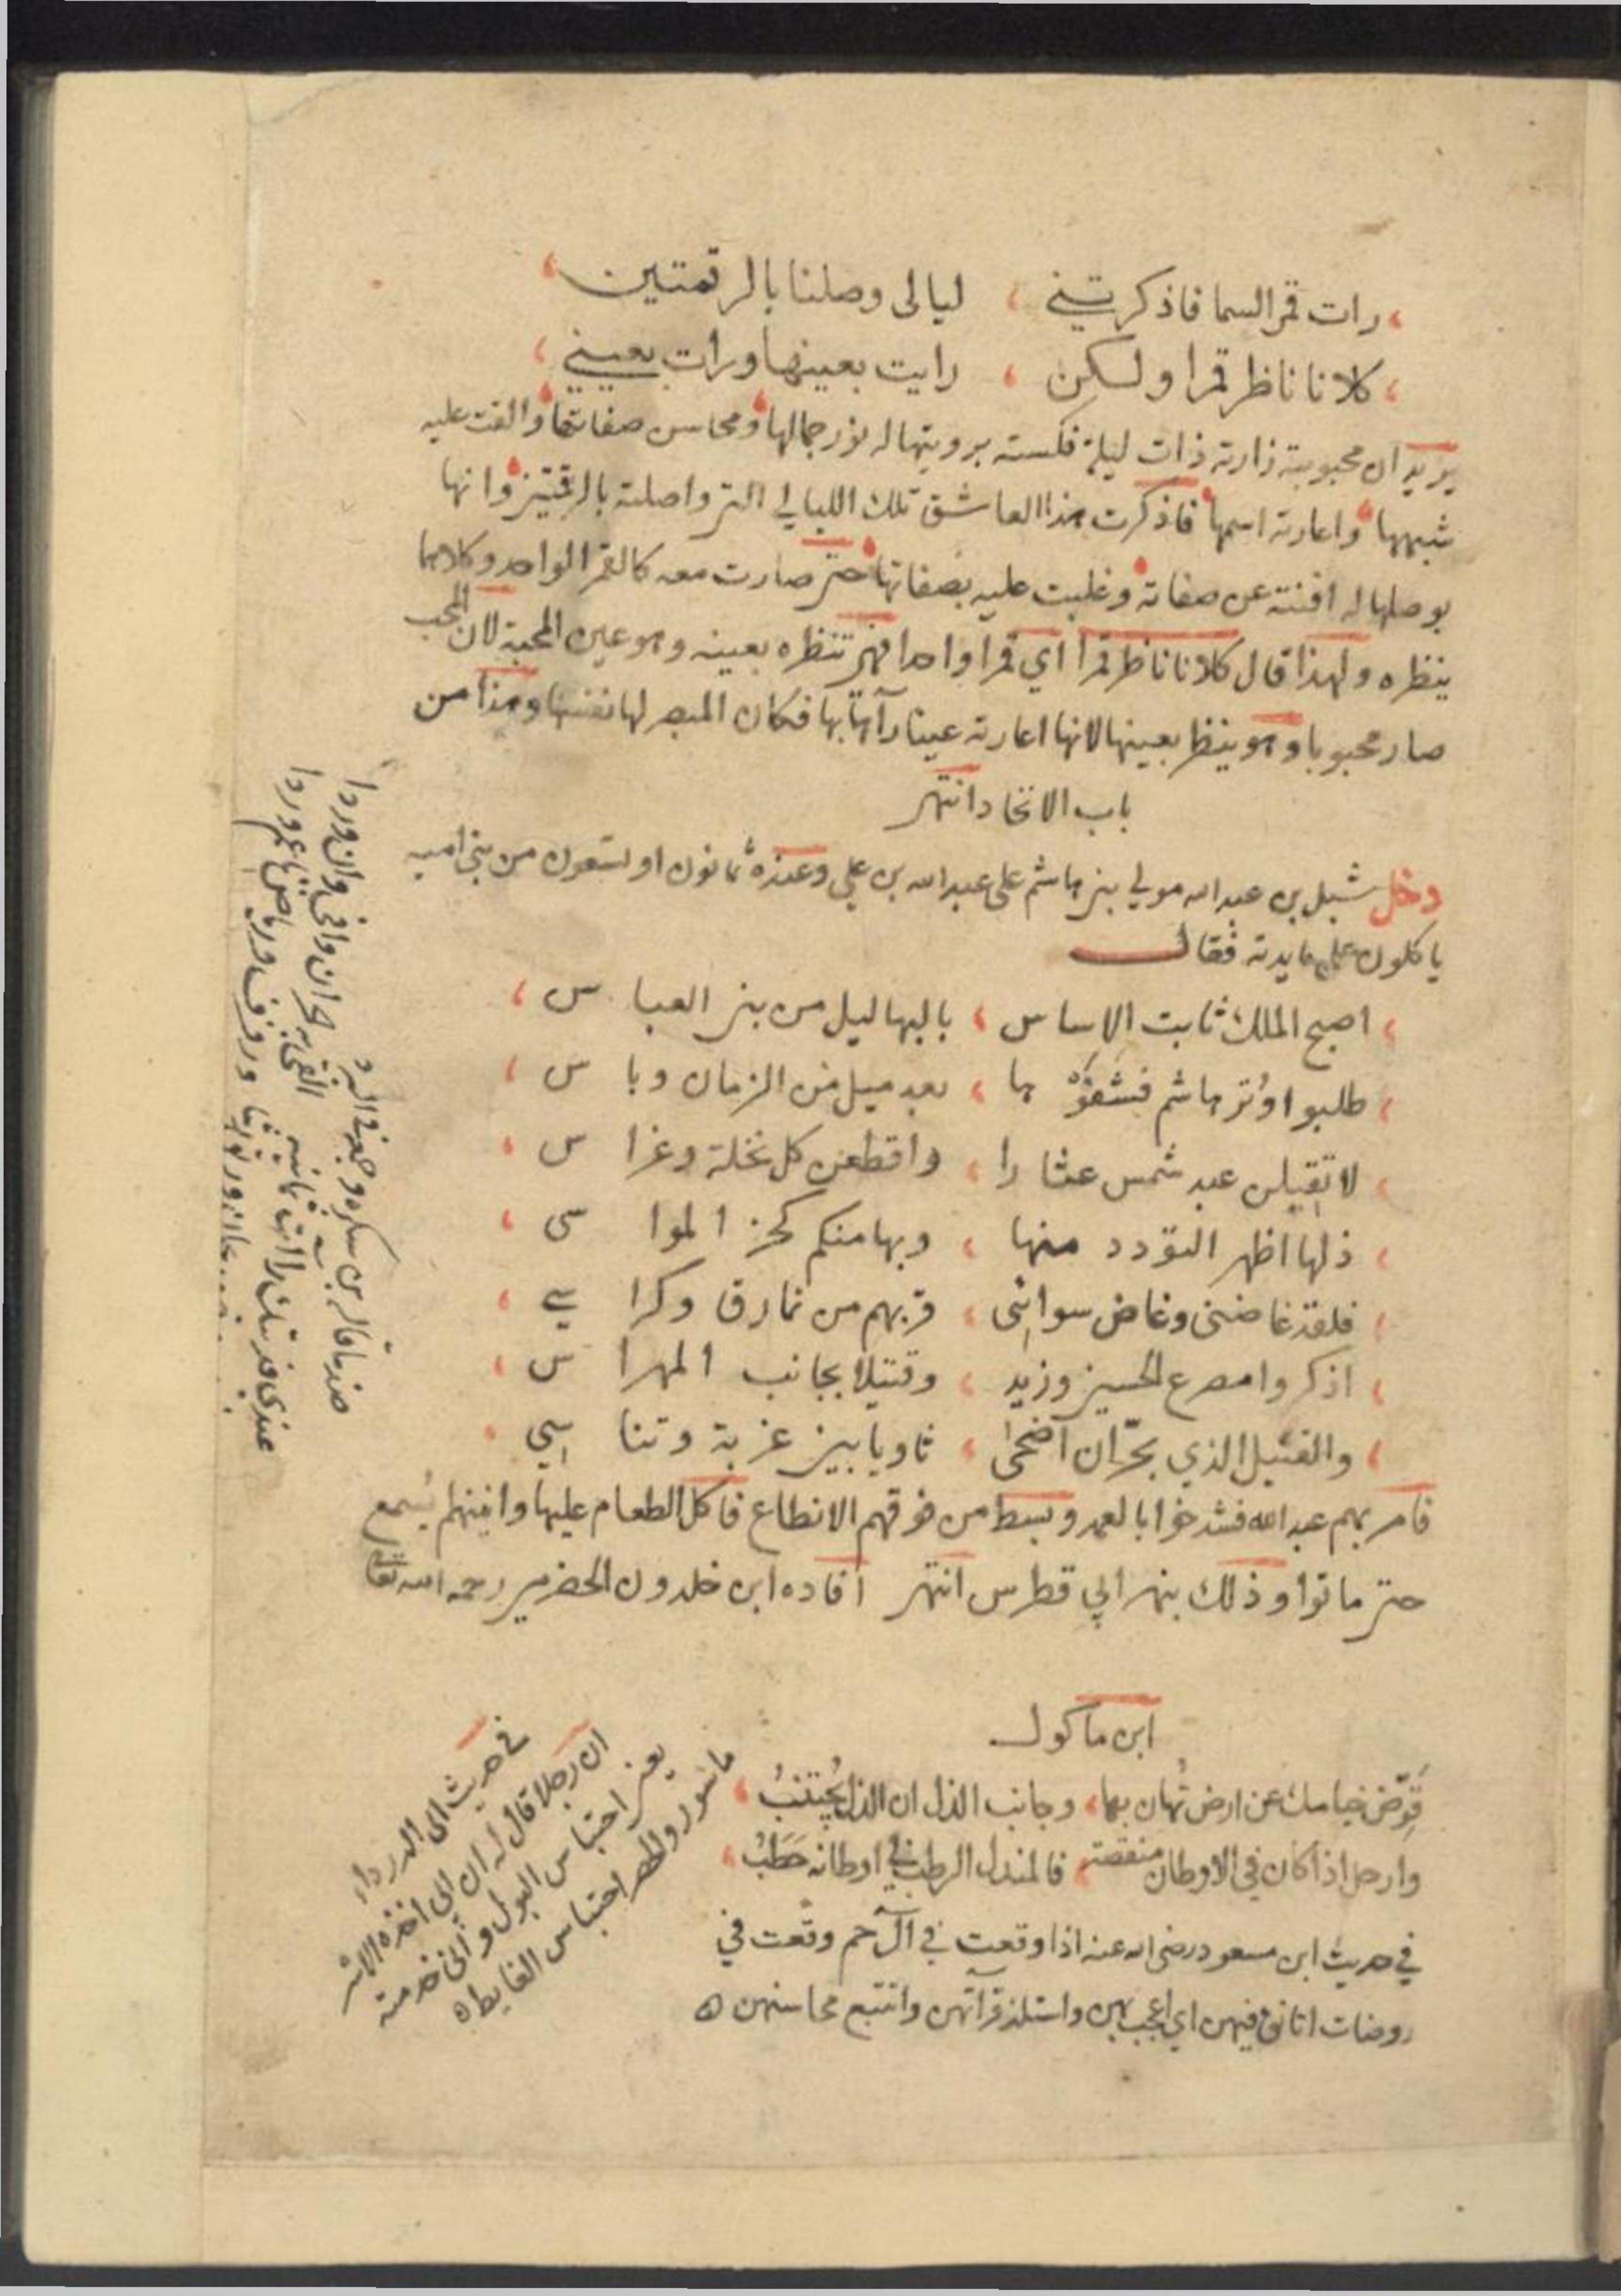 رات قمر السما فاذكرتني ، ليالى وصلنا بالرقمتين ،
كلانا ناظر قمرا ولكن ، رايت بعينها ورات بعيني ،
يريد ان محبوبته زارته ذات ليلة فكسته برويتها له نور جمالها ومحاسن صفاتها والقت عليه
شبهها واعارته اسمها فاذكرت هذا العاشق تلك الليالي التي واصلته بالرقمتين وانها
بوصلها له افنته عن صفاته وغلبت عليه بصفاتها حتى صارت معه كالقمر الواحد وكلاهما
ينظره ولهذا قال كلانا ناظر قمرا اي قمرا واحدا فهي تنظره بعينه وهو عين المحبة لان المحب
صار محبوبا وهو ينظر بعينها لانها اعارته عينا رآها بها فكان المبصر لها نفسها وهذا من
باب الاتحاد انتهى
دخل شبل بن عبد الله مولي بني هاشم على عبد الله بن علي وعنده ثمانون او تسعون من بني اميه
ياكلون على مايدته فقال
اصبح الملك ثابت الاساس ، بالبهاليل من بني العباس ،
طلبوا وتر هاشم فشفوها ، بعد ميل من الزمان وباس ،
لا تقيلن عبد شمس عثارا ، واقطعن كل نخلة وغراس ،
ذلها اظهر التودد منها ، وبها منكم كحز المواسى ،
فلقد غاضنى وغاض سوائى ، قربهم من نمارق وكراسي ،
اذكروا مصرع الحسين وزيد ، وقتيلا بجانب المهراس ،
والقتيل الذي بحرّان اضحى ، ثاويا بين غربة وتناسي ،
فامر بهم عبد الله فشدخوا بالعمد وبسط من فوقهم الانطاع فاكل الطعام عليها وانينهم يسمع
حتى ماتوا وذلك بنهر ابي فطرس انتهى افاده ابن خلدون الحضرمي رحمه الله تعالى
ابن ماكول
قوّض خيامك عن ارض تُهان بها، وجانب الذل ان الذل يُجتنبُ ،
وارحل اذا كان في الاوطان منقصة، فالمندل الرطب في اوطانه حَطَبُ ،
في حديث ابن مسعود رضى الله عنه اذا وقعت في آل حم وقعت في
روضات اتانق فيهن اي اعجب بهن واستلذ قراتهن واتتبع محاسنهن ه
في حديث ابى الدرداء
ان رجلا قال له ان ابى اخذه الاسر
يعني احتباس البول
ماسور والحصر احتباس الغايط ه